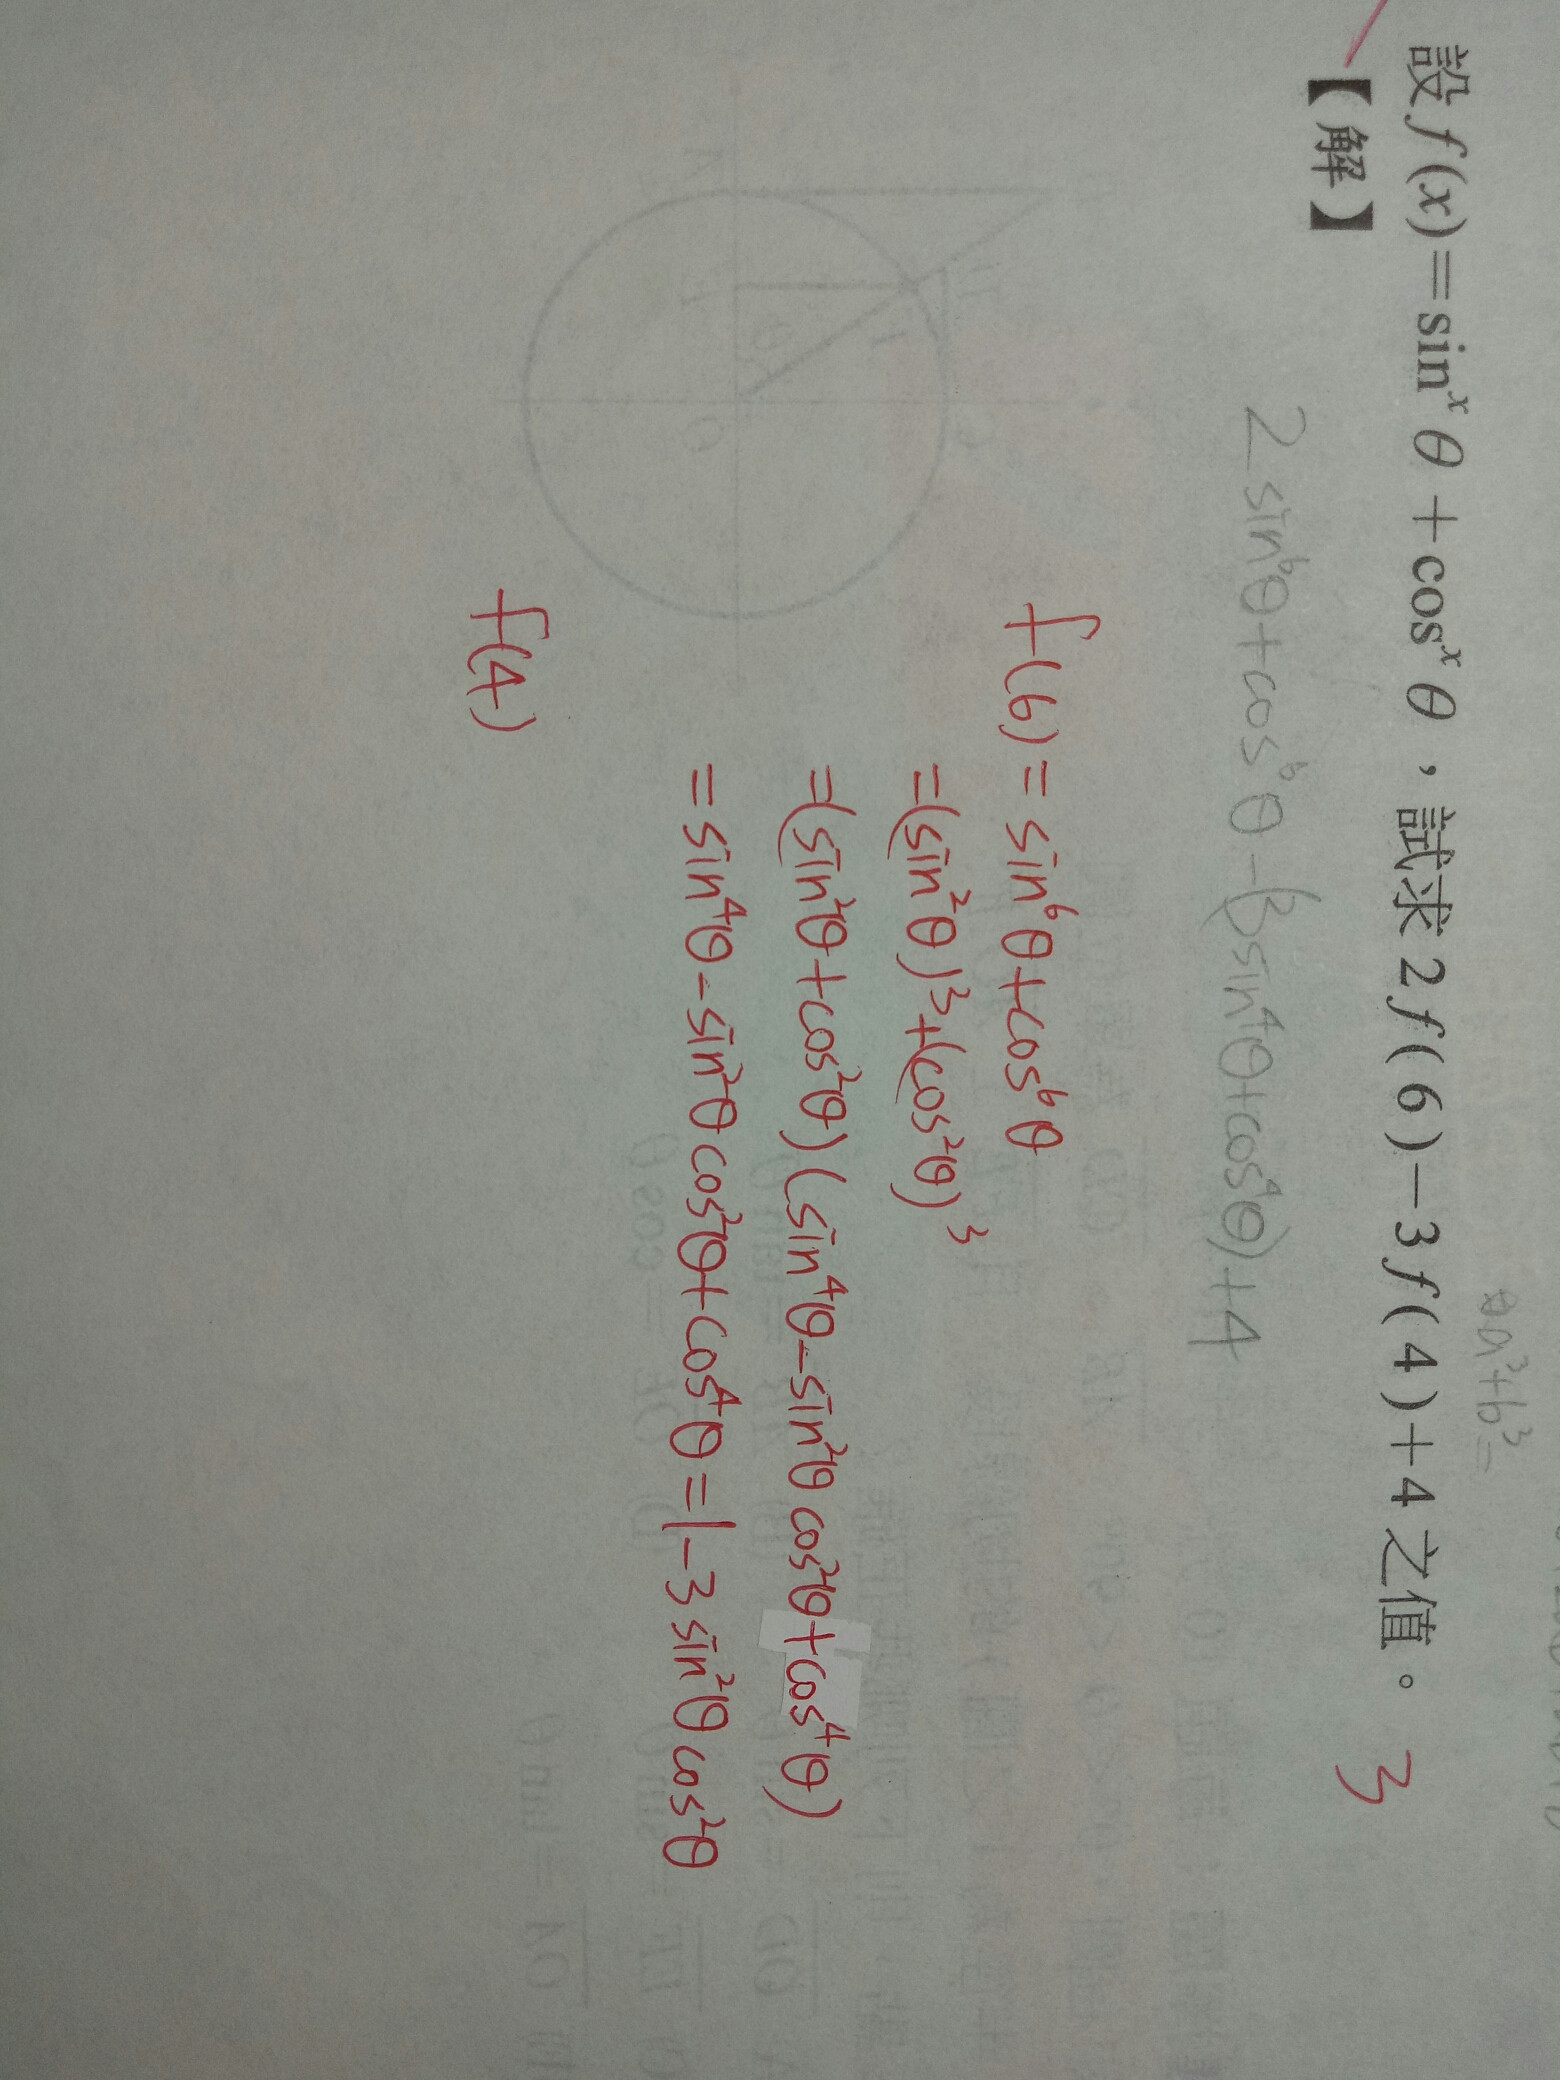 a³+b³=
設 f(x)=sinˣθ+cosˣθ，試求 2f(6)-3f(4)+4 之值。 3
【解】
2sin⁶θ+cos⁶θ-(3sin⁴θ+cos⁴θ)+4
f(6)=sin⁶θ+cos⁶θ
=(sin²θ)³+(cos²θ)³
=(sin²θ+cos²θ)(sin⁴θ-sin²θcos²θ+cos⁴θ)
=sin⁴θ-sin²θcos²θ+cos⁴θ=1-3sin²θcos²θ
f(4)